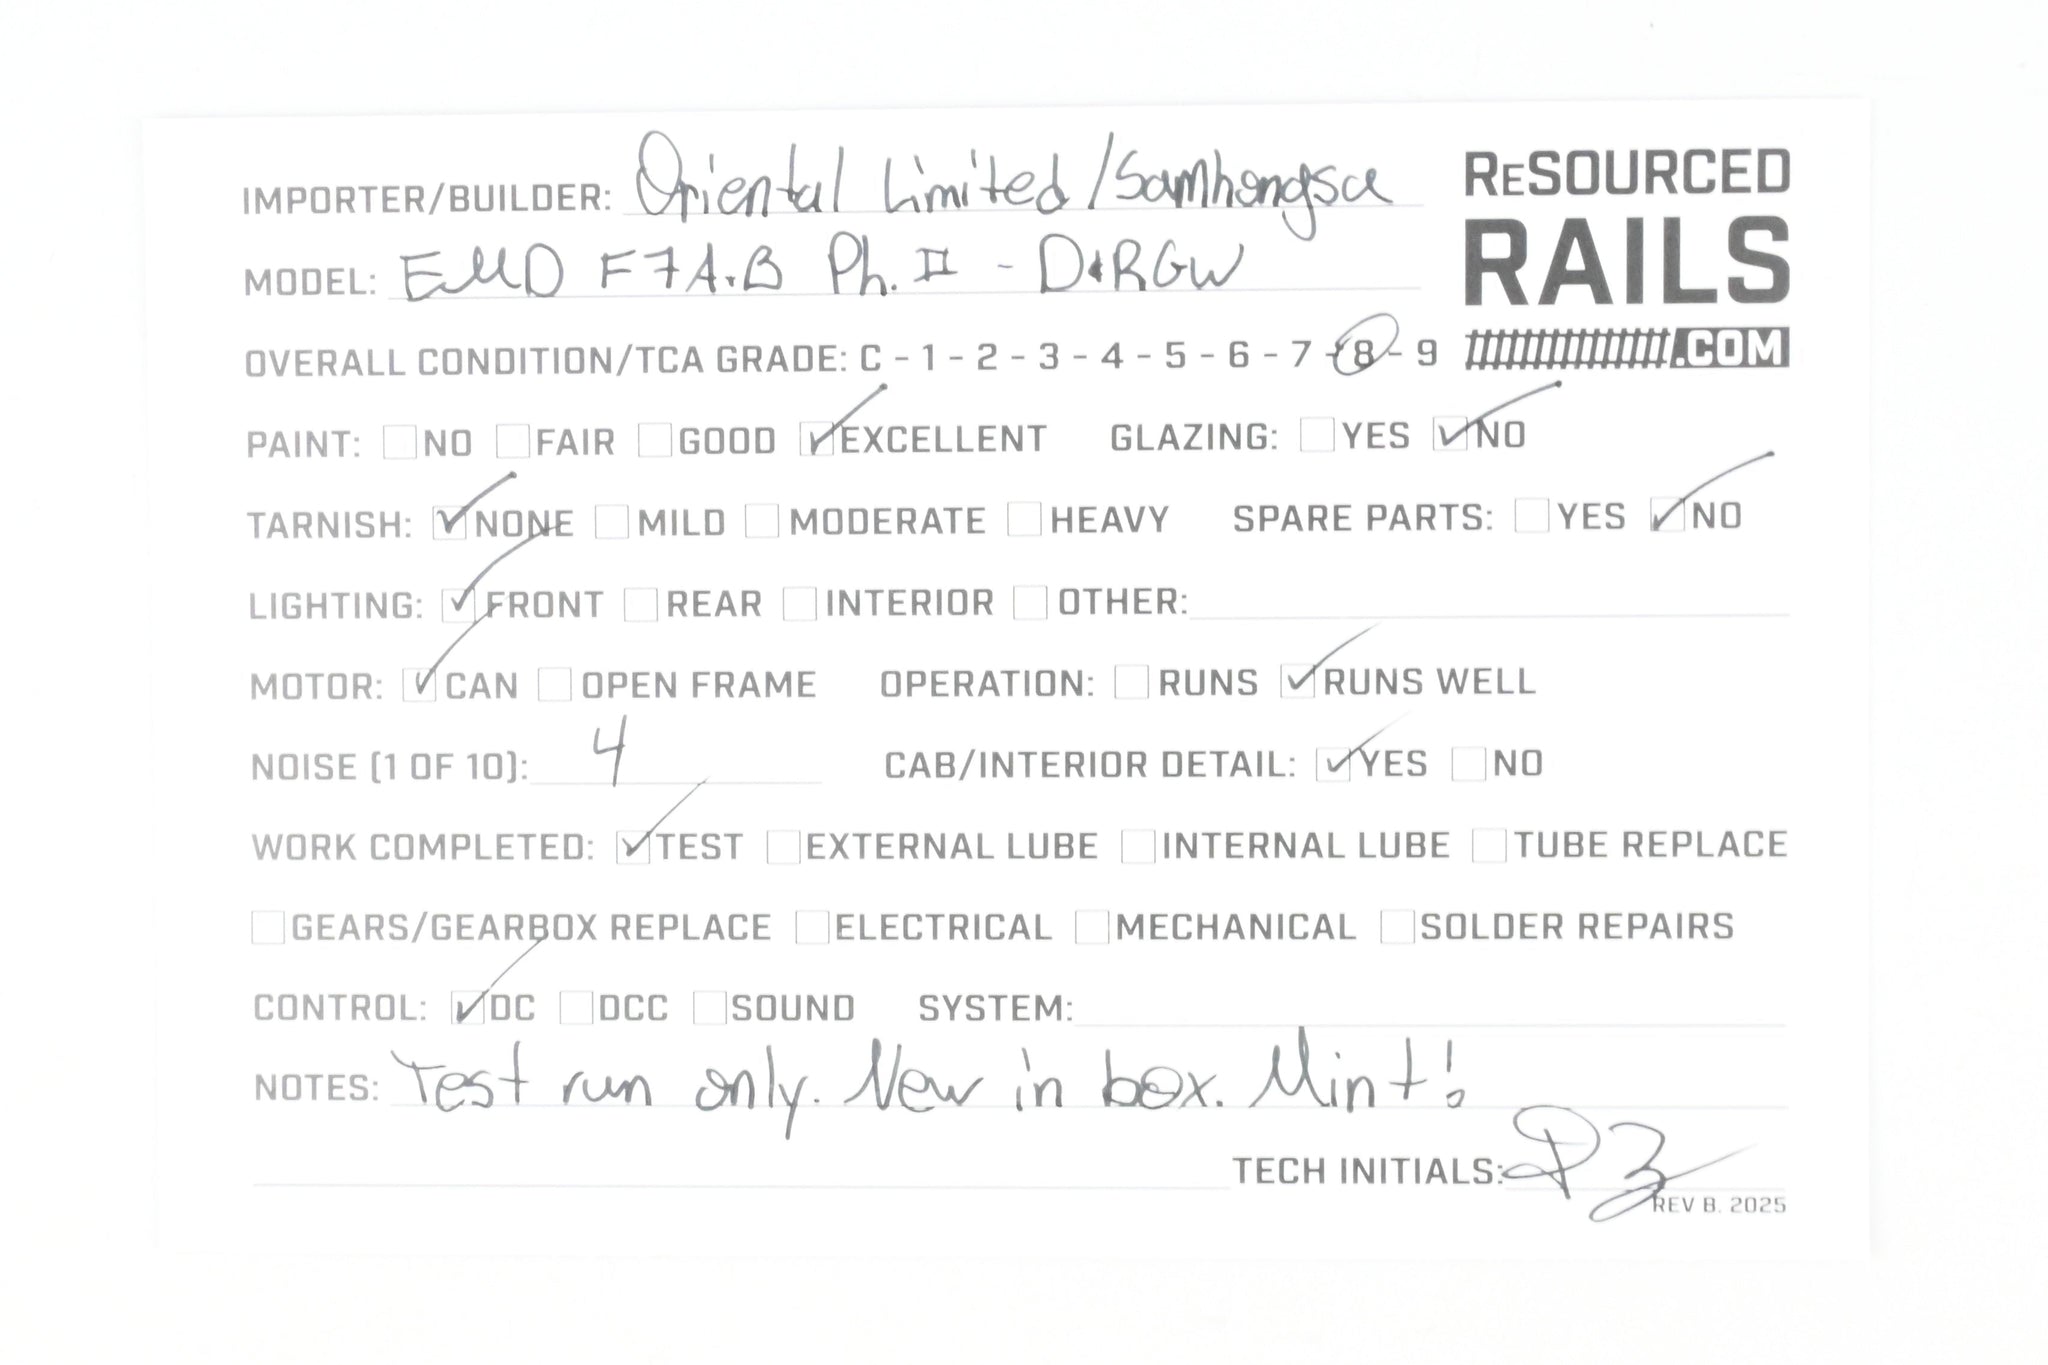 IMPORTER/BUILDER: Oriental Limited/Samhongsa
RESOURCED
RAILS
.COM
MODEL: EMD F7A.B Ph. II - D&RGW
OVERALL CONDITION/TCA GRADE: C - 1 - 2 - 3 - 4 - 5 - 6 - 7 - 8 - 9
PAINT: NO FAIR GOOD ✓EXCELLENT GLAZING: YES ✓NO
TARNISH: ✓NONE MILD MODERATE HEAVY SPARE PARTS: YES ✓NO
LIGHTING: ✓FRONT REAR INTERIOR OTHER:
MOTOR: ✓CAN OPEN FRAME OPERATION: RUNS ✓RUNS WELL
NOISE (1 OF 10): 4 CAB/INTERIOR DETAIL: ✓YES NO
WORK COMPLETED: ✓TEST EXTERNAL LUBE INTERNAL LUBE TUBE REPLACE
GEARS/GEARBOX REPLACE ELECTRICAL MECHANICAL SOLDER REPAIRS
CONTROL: ✓DC DCC SOUND SYSTEM:
NOTES: Test run only. New in box. Mint!
TECH INITIALS:
REV B. 2025